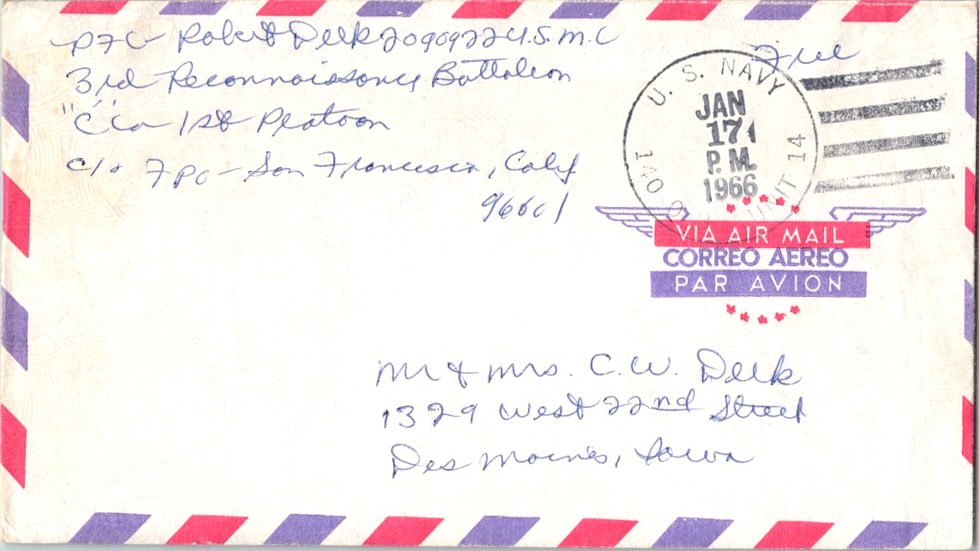 PFC Robert Delk 2090922 U.S.M.C
Free
3rd Reconnaissance Battalion
"C" Co 1st Platoon
c/o FPO - San Francisco, Calif
96601
U. S. NAVY
JAN
17
P.M.
1966
140 UNIT 14
VIA AIR MAIL
CORREO AEREO
PAR AVION
Mr & Mrs. C.W. Delk
1329 West 22nd Street
Des Moines, Iowa